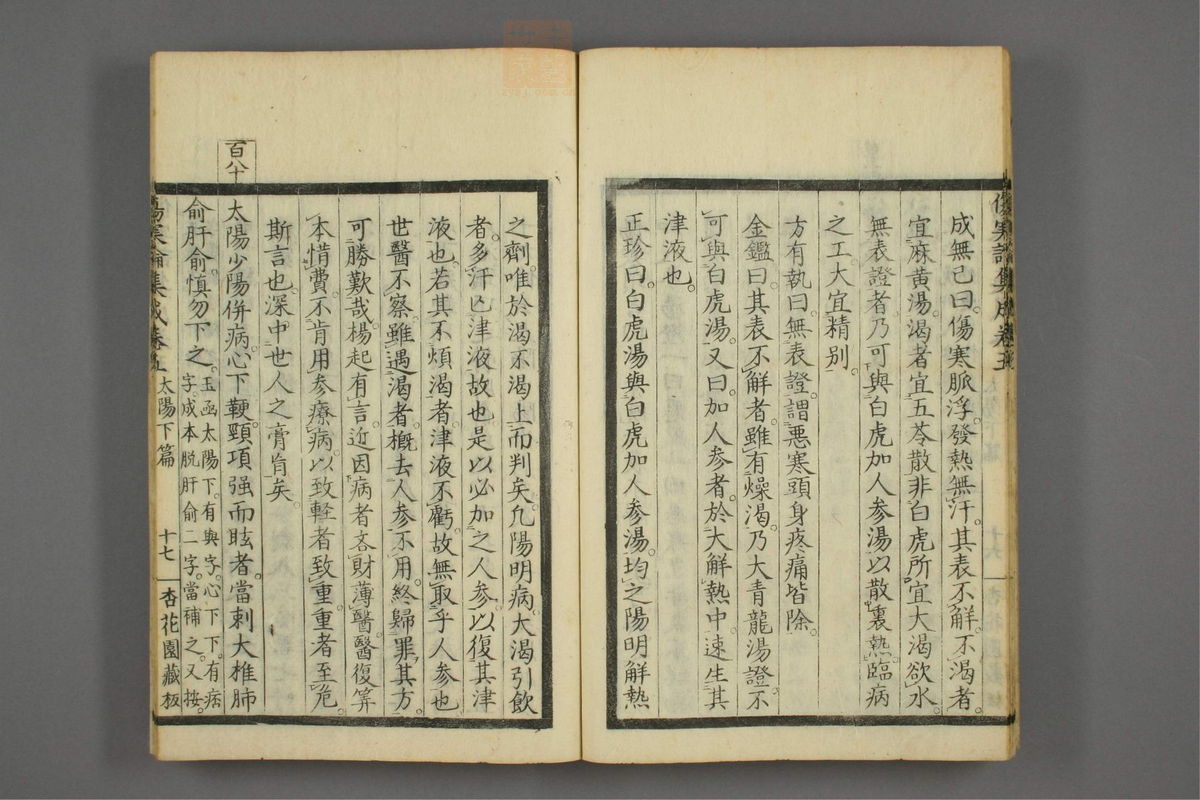 傷寒論集成卷五
成無己曰。傷寒脈浮。發熱無汗。其表不解。不渴者。
宜麻黃湯。渴者宜五苓散。非白虎所宜。大渴欲水。
無表證者。乃可與白虎加人参湯。以散裏熱。臨病
之工。大宜精別。
方有執曰。無表證。謂惡寒頭身疼痛皆除。
金鑑曰。其表不解者。雖有燥渴。乃大青龍湯證。不
可與白虎湯。又曰。加人参者。於大解熱中。速生其
津液也。
正珍曰。白虎湯與白虎加人参湯。均之陽明解熱
之劑。唯於渴不渴上而判矣。凢陽明病。大渴引飲
者。多汗亡津液故也。是以必加之人参。以復其津
液也。若其不煩渴者。津液不虧。故無取乎人参也
世醫不察。雖遇渴者。概去人参不用。終歸罪其方。
可勝歎哉。楊起有言。近因病者吝財薄醫。醫復算
本惜費。不肯用参療病。以致輕者致重。重者至危。
斯言也。深中世人之膏肓矣。
百八十
太陽少陽併病。心下鞕。頸項强而眩者。當刺大椎肺
俞肝俞。愼勿下之。玉函太陽下。有與字。心下下。有痞
字。成本脱肝俞二字。當補之。又按。
傷寒論集成卷五 太陽下篇 十七 杏花園藏板